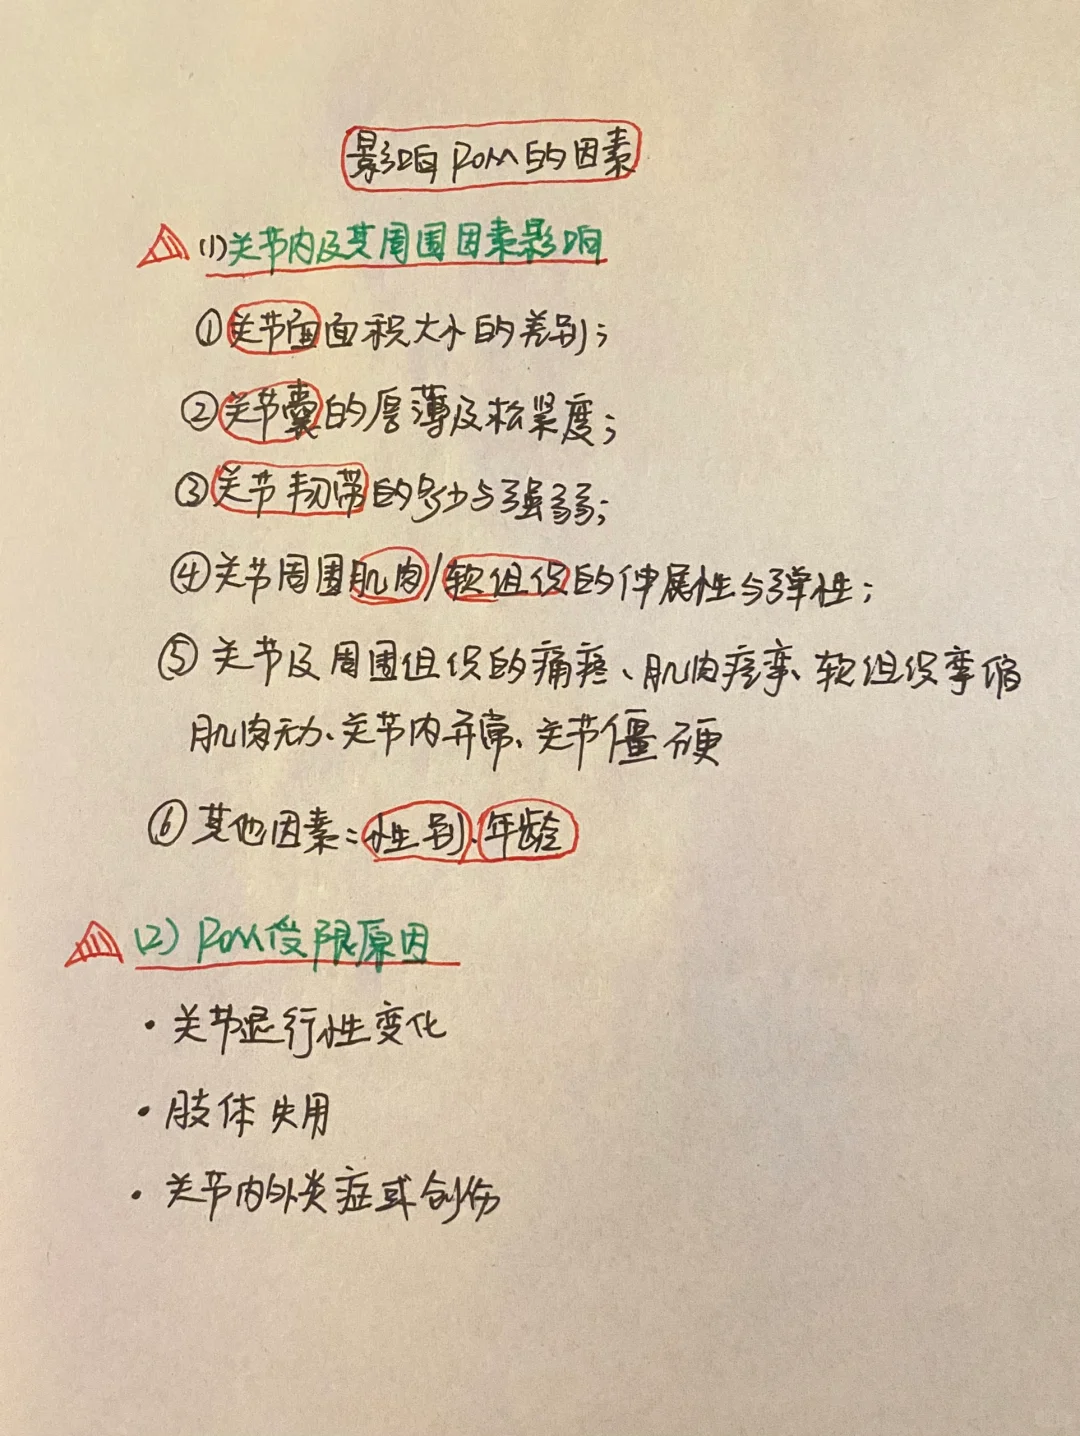 影响ROM的因素
(1)关节内及其周围因素影响
①关节面面积大小的差别;
②关节囊的厚薄及松紧度;
③关节韧带的多少与强弱;
④关节周围肌肉/软组织的伸展性与弹性;
⑤关节及周围组织的痛疼、肌肉痉挛、软组织挛缩
肌肉无力、关节内异常、关节僵硬
⑥其他因素:性别、年龄
(2)ROM受限原因
·关节退行性变化
·肢体失用
·关节内外炎症或创伤